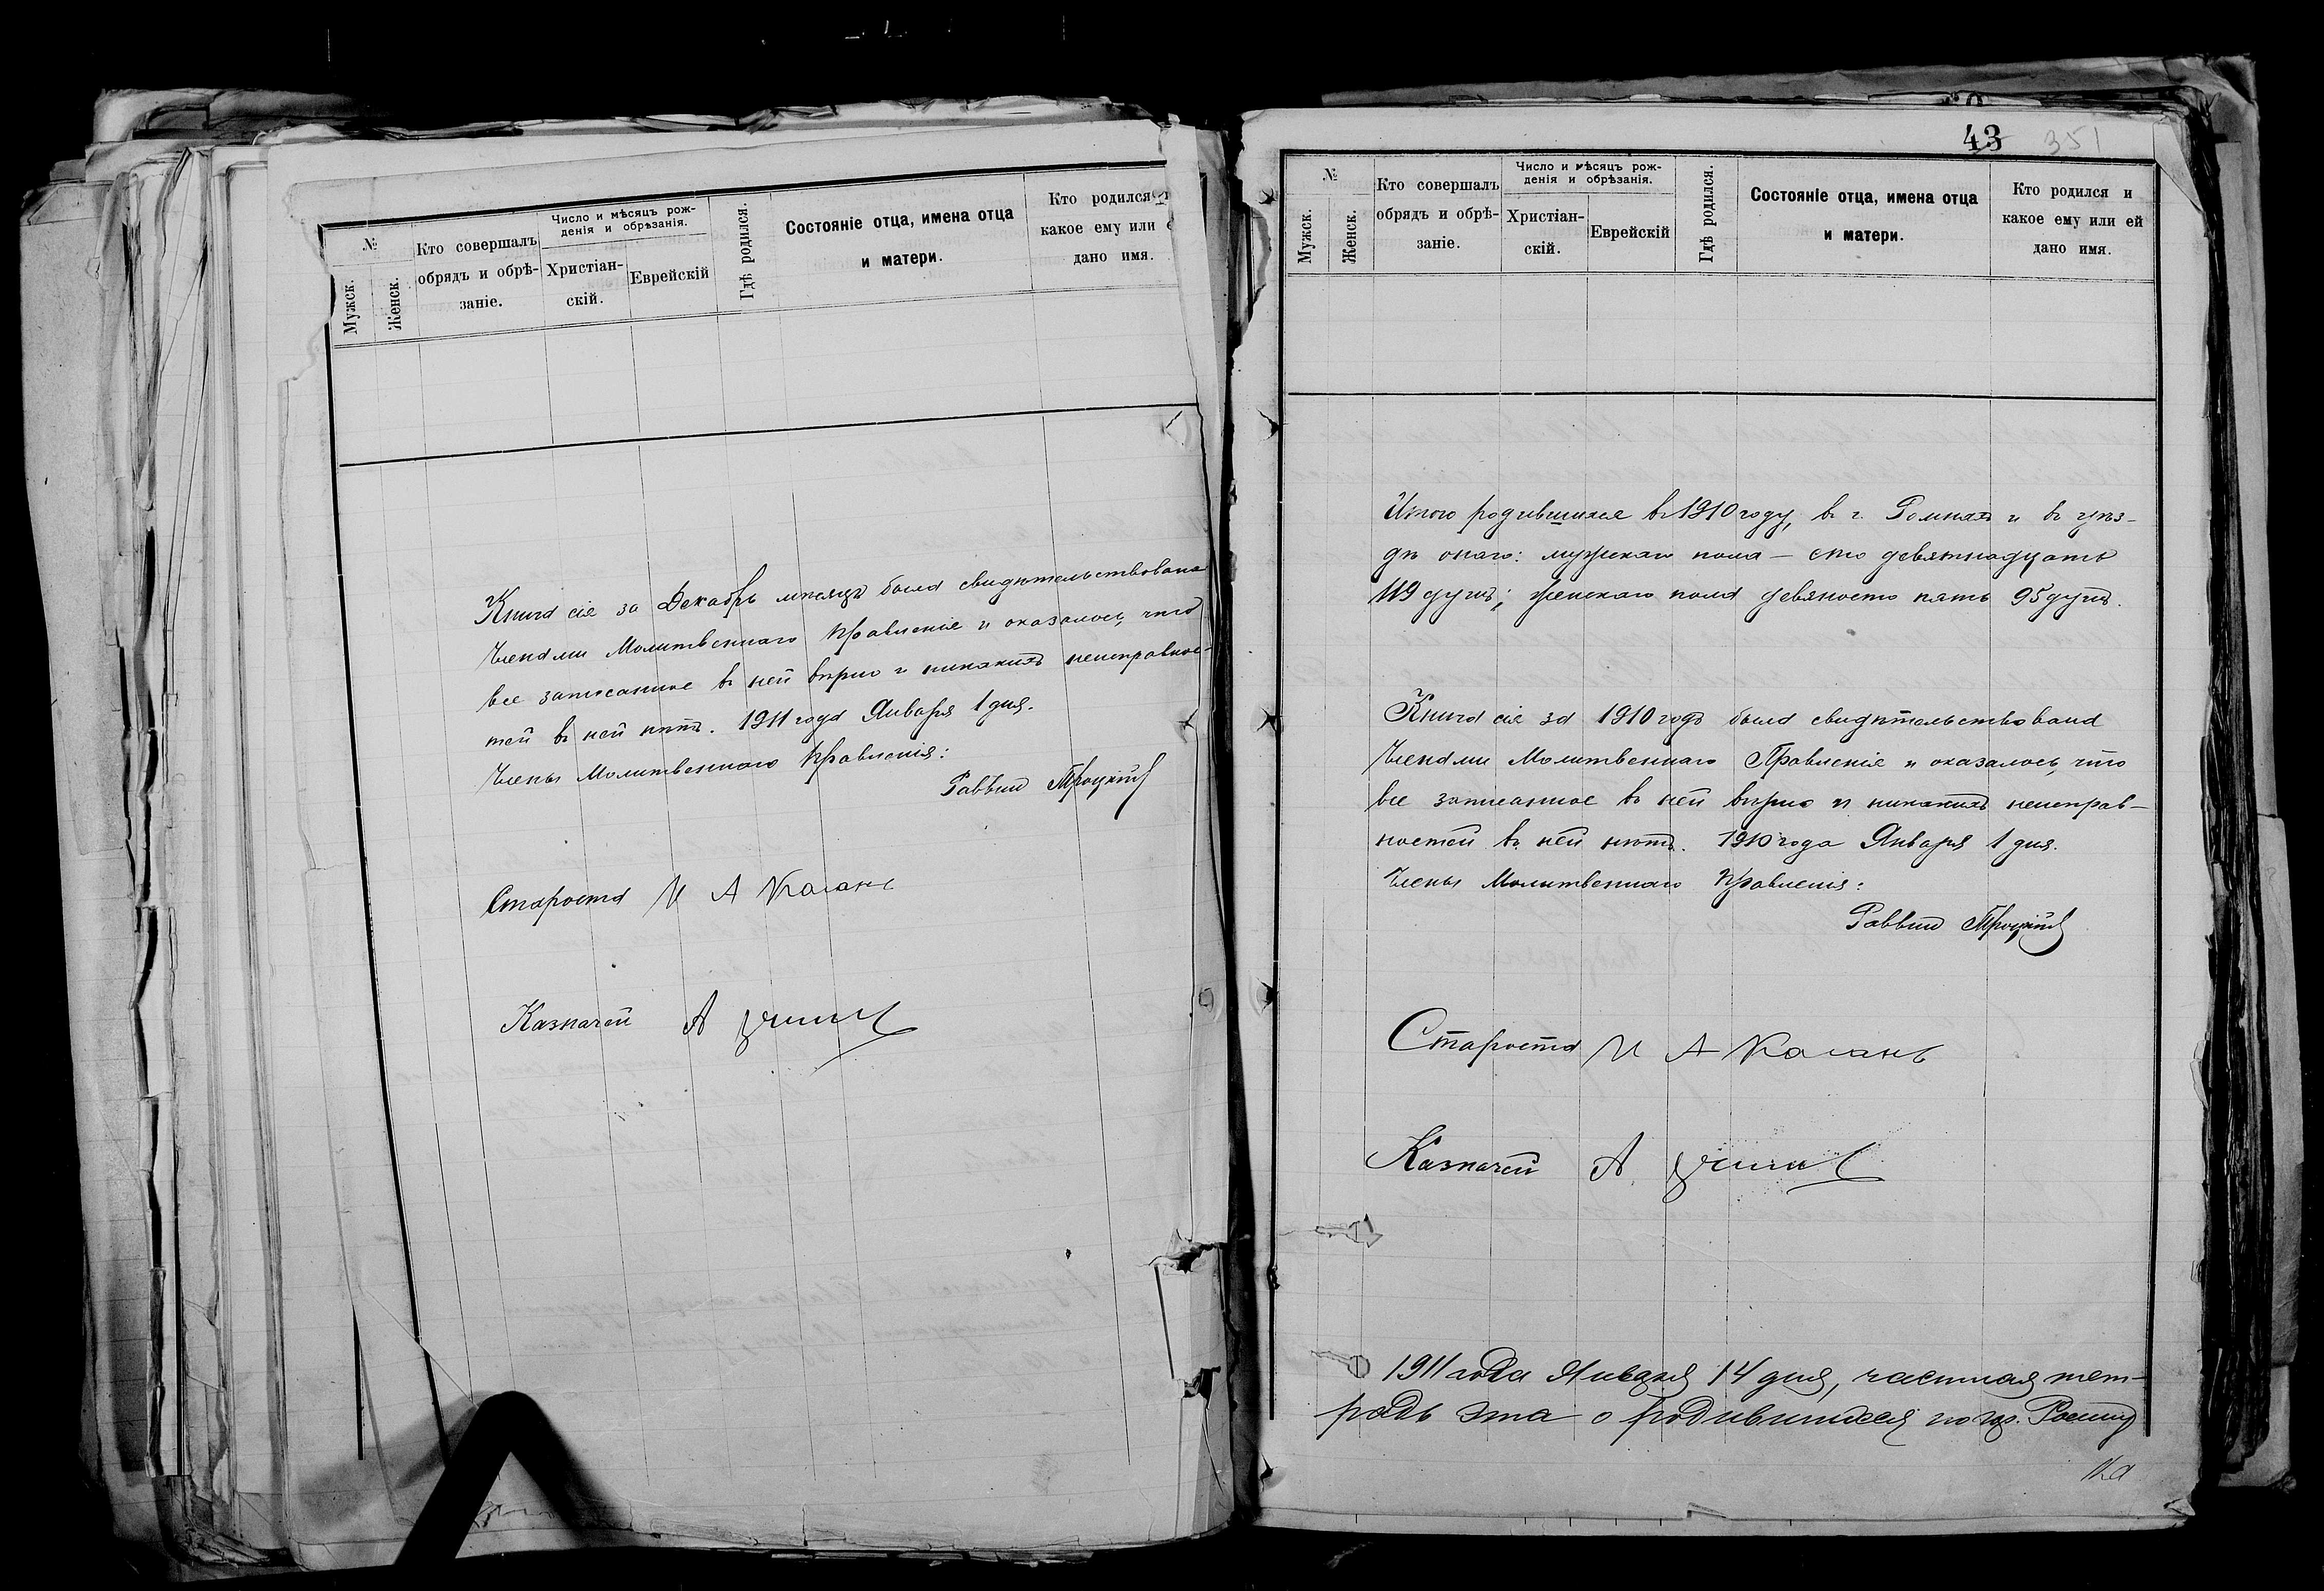 №
Мужск.
Женск.
Кто совершалъ
обрядъ и обрѣ-
заніе.
Число и мѣсяцъ рож-
денія и обрѣзанія.
Христіан-
скій.
Еврейскій
Гдѣ родился.
Состояніе отца, имена отца
и матери.
Кто родился
какое ему или
дано имя.
Книга сія за Декабрь мѣсяцъ была свидѣтельствована
Членами Молитвеннаго Правленія и оказалось, что
все записанное въ ней вѣрно и никакихъ неисправнос-
тей въ ней нѣтъ. 1911 года Января 1 дня.
Члены Молитвеннаго Правленія:
Раввинъ Троцкій
Староста И А Каганъ
Казначей А
43 351
№
Мужск.
Женск.
Кто совершалъ
обрядъ и обрѣ-
заніе.
Число и мѣсяцъ рож-
денія и обрѣзанія.
Христіан-
скій.
Еврейскій
Гдѣ родился.
Состояніе отца, имена отца
и матери.
Кто родился и
какое ему или ей
дано имя.
Итого родившихся въ 1910 году, въ г. Ромнахъ и въ уѣз-
дѣ онаго: мужскаго пола — сто девятнадцать
119 душъ; женскаго пола девяносто пять 95 душъ.
Книга сія за 1910 годъ была свидѣтельствована
Членами Молитвеннаго Правленія и оказалось, что
все записанное въ ней вѣрно и никакихъ неисправ-
ностей въ ней нѣтъ. 1910 года Января 1 дня.
Члены Молитвеннаго Правленія:
Раввинъ Троцкій
Староста И А Каганъ
Казначей А
1911 года Января 14 дня, частная тет-
радь эта о родившихся по гор.